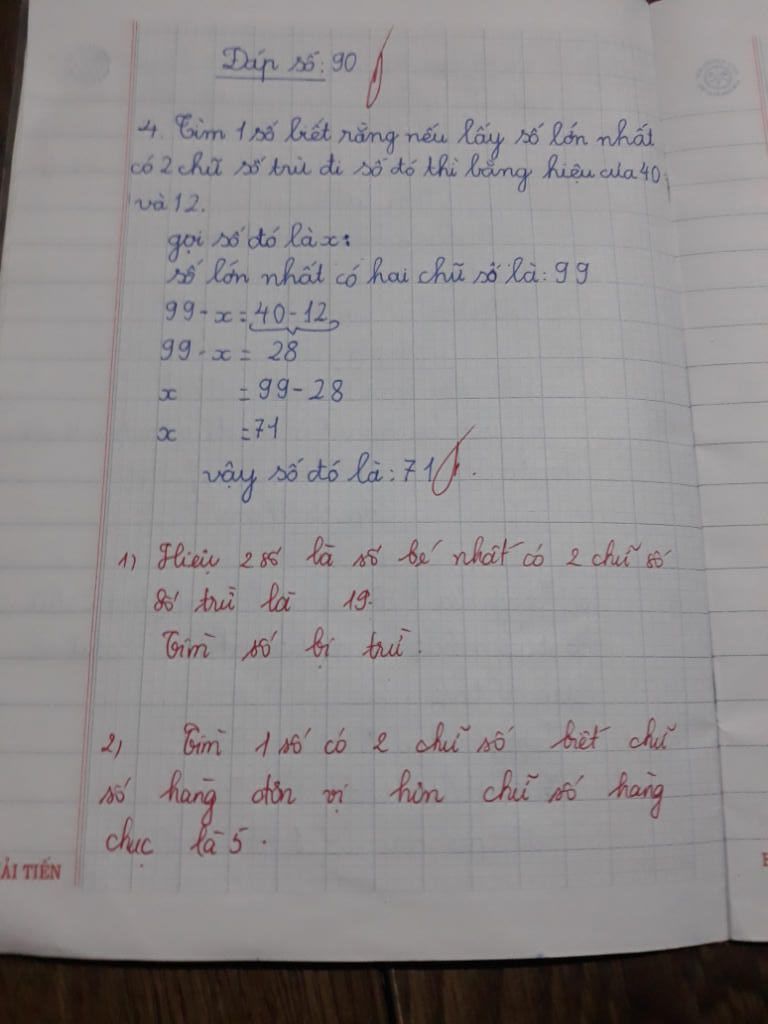 Đáp số: 90
4. Tìm 1 số biết rằng nếu lấy số lớn nhất
có 2 chữ số trừ đi số đó thì bằng hiệu của 40
và 12.
gọi số đó là x:
số lớn nhất có hai chữ số là: 99
99 - x = 40 - 12
99 - x = 28
x = 99 - 28
x = 71
vậy số đó là: 71.
1) Hiệu 2 số là số bé nhất có 2 chữ số
số trừ là 19.
Tìm số bị trừ.
2) Tìm 1 số có 2 chữ số biết chữ
số hàng đơn vị hơn chữ số hàng
chục là 5.
ẢI TIẾN